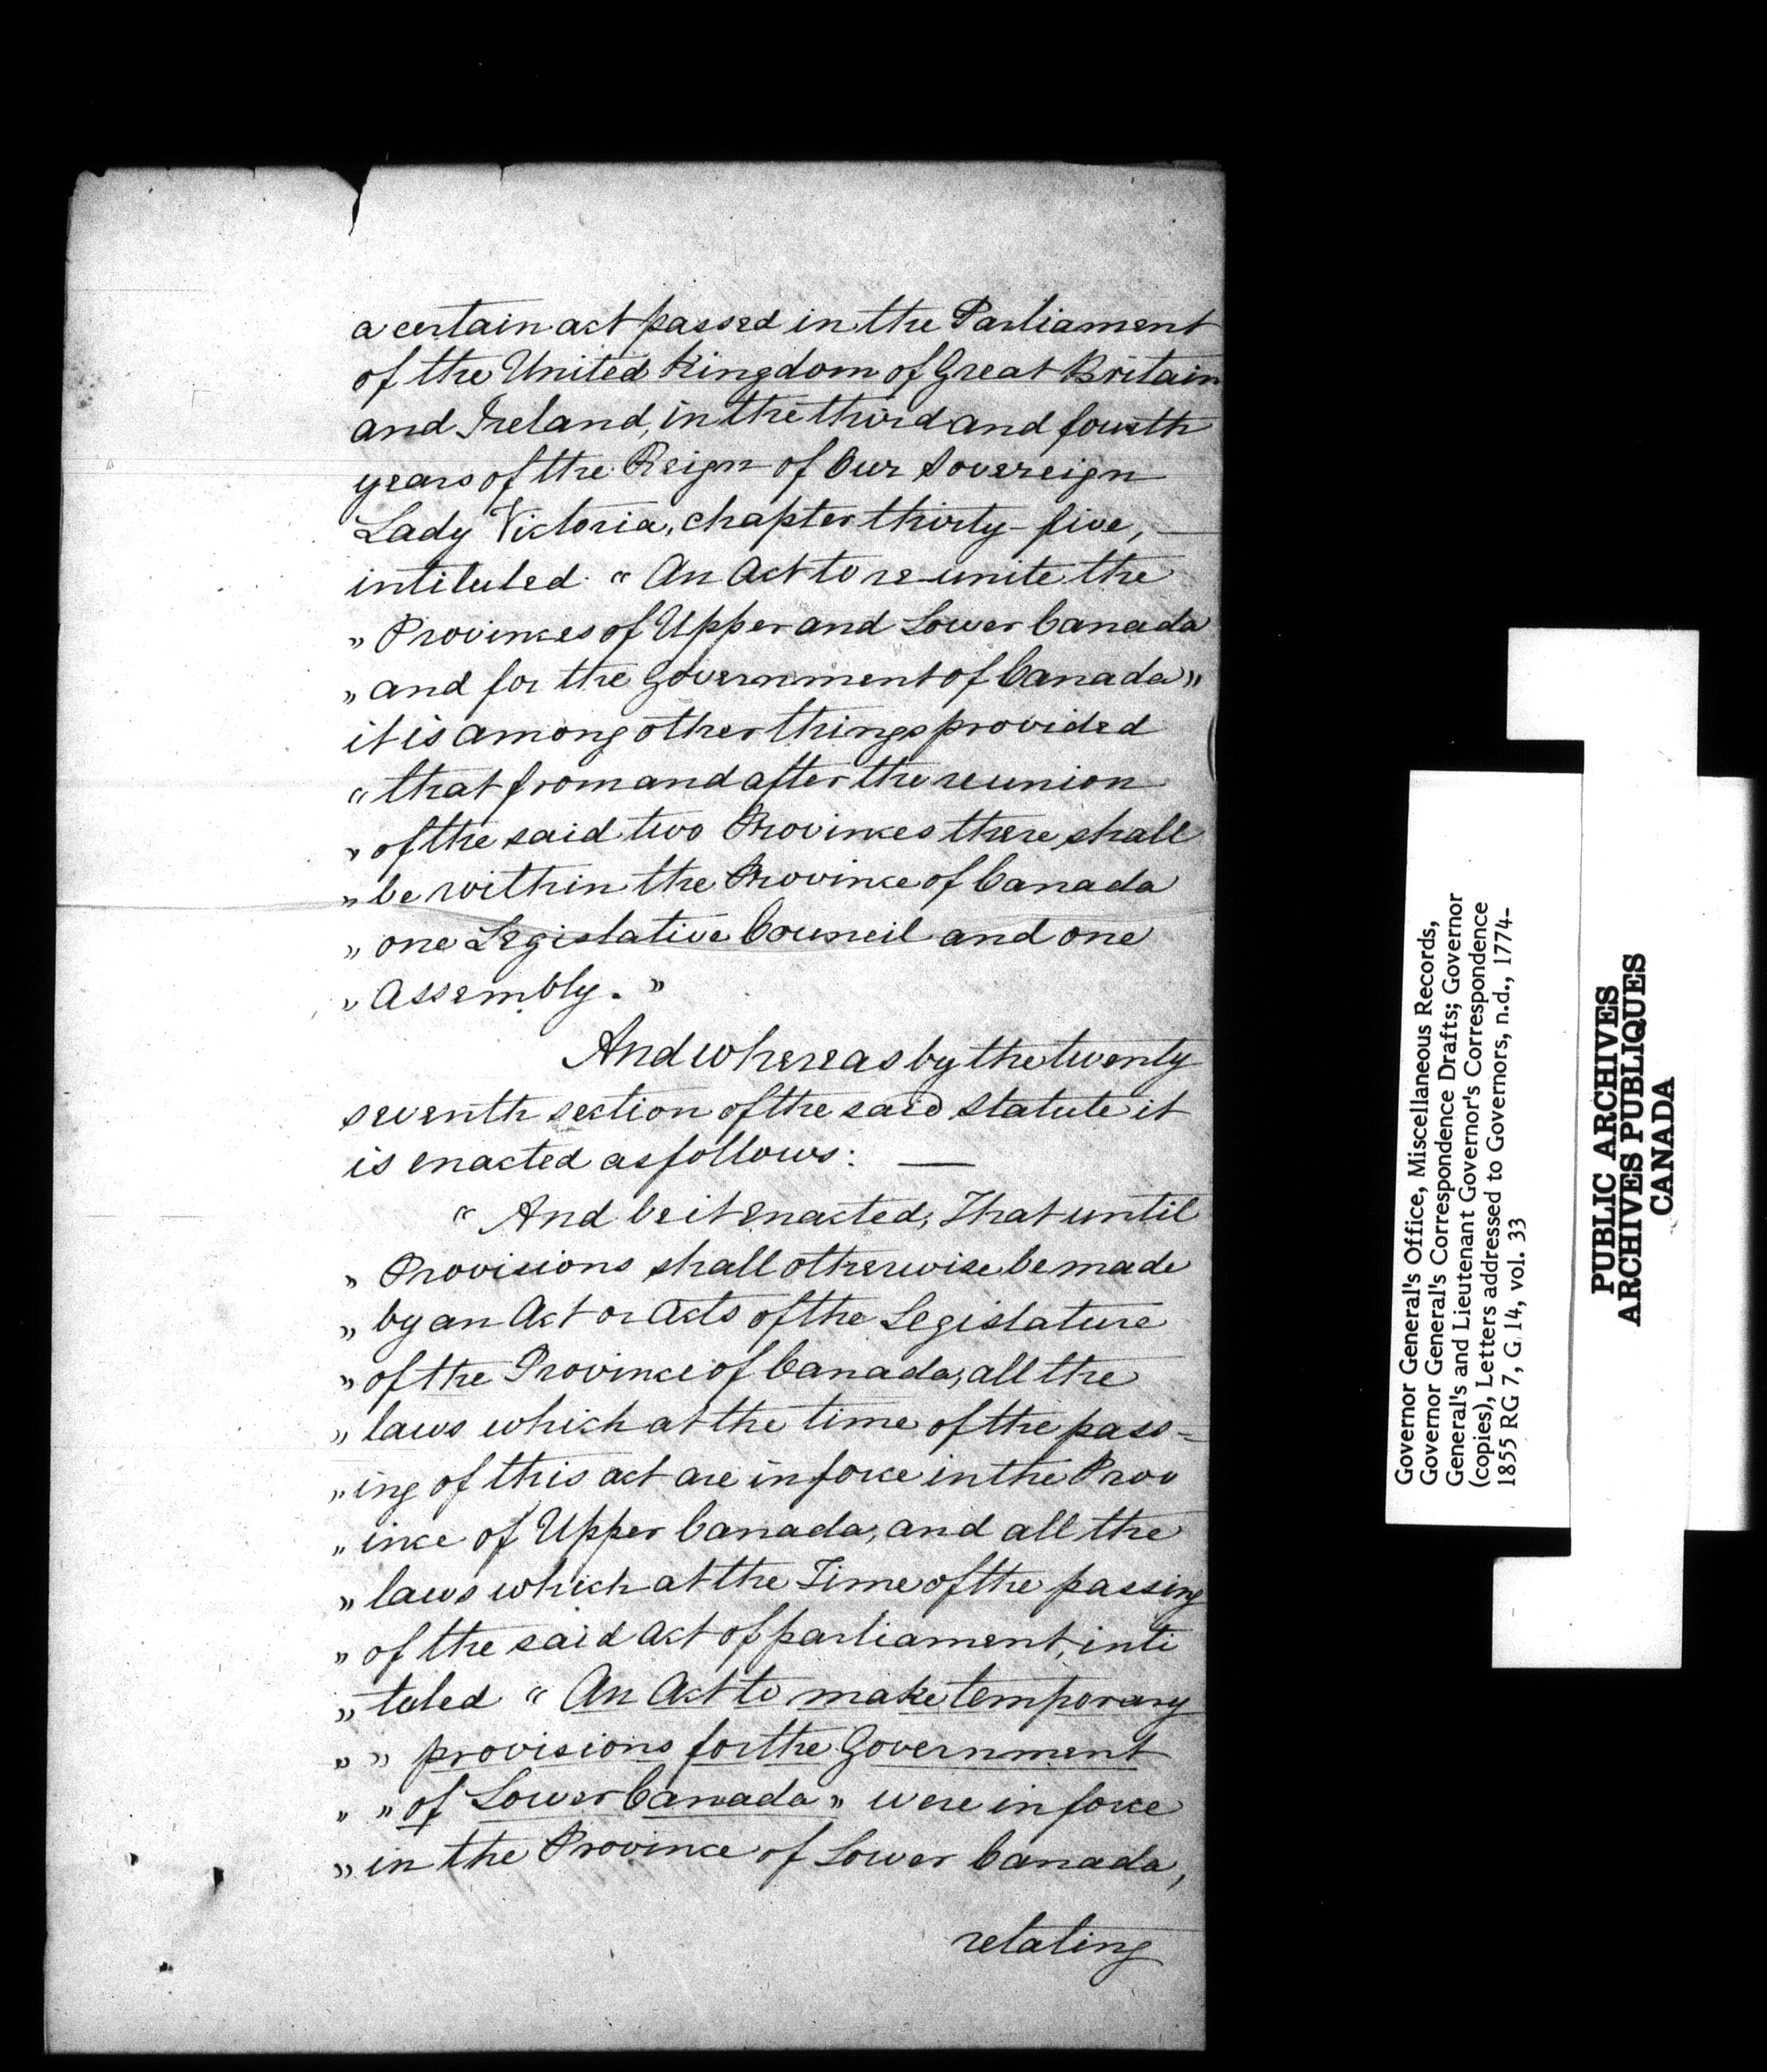 a certain act passed in the Parliament
of the United Kingdom of Great Britain
and Ireland, in the third and fourth
years of the Reign of Our Sovereign
Lady Victoria, chapter thirty-five, —
intituled “ An Act to re-unite the
” Provinces of Upper and Lower Canada
” and for the Government of Canada ”
it is among other things provided
“ that from and after the reunion
” of the said two Provinces there shall
” be within the Province of Canada
” one Legislative Council and one
” Assembly. ”
And whereas by the twenty
seventh section of the said Statute it
is enacted as follows: —
“ And be it enacted, That until
” Provisions shall otherwise be made
” by an Act or Acts of the Legislature
” of the Province of Canada, all the
” laws which at the time of the pass=
” ing of this act are in force in the Prov
” ince of Upper Canada, and all the
” laws which at the Time of the passing
” of the said Act of parliament, inti
” tuled “ An Act to make temporary
” ” provisions for the Government
” ” of Lower Canada ” were in force
” in the Province of Lower Canada,
relating
Governor General's Office, Miscellaneous Records,
Governor General's Correspondence Drafts; Governor
General's and Lieutenant Governor's Correspondence
(copies), Letters addressed to Governors, n.d., 1774-
1855 RG 7, G 14, vol. 33
PUBLIC ARCHIVES
ARCHIVES PUBLIQUES
CANADA